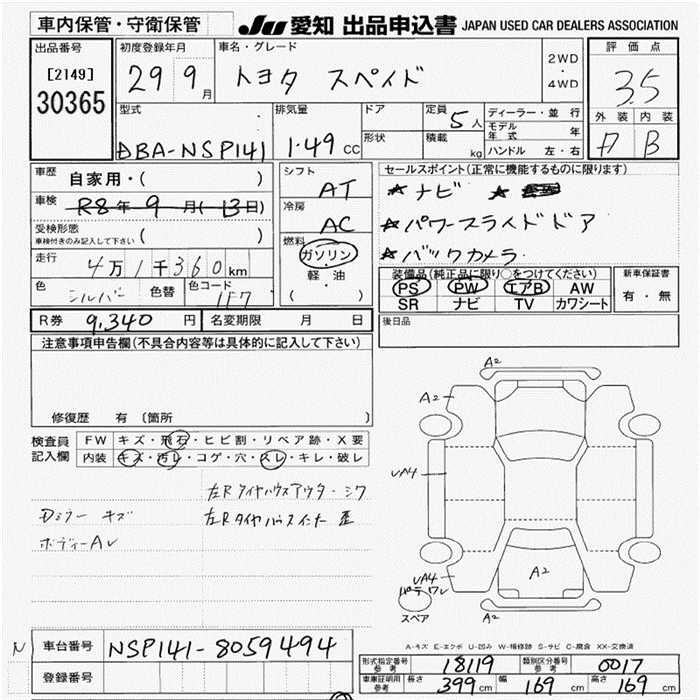 車内保管・守衛保管 JU 愛知 出品申込書 JAPAN USED CAR DEALERS ASSOCIATION
出品番号 初度登録年月 車名・グレード 2WD・4WD 評価点
[2149] 29 9月 トヨタ スペイド 3.5
30365 型式 排気量 ドア 定員 5人 ディーラー・並行 外装 内装
形状 積載 kg モデル年式 年
DBA-NSP141 1.49cc ハンドル 左・右 B
車歴 自家用・( ) シフト AT セールスポイント(正常に機能するものに限り)
車検 R8年9月(13日) 冷房 AC ★ナビ ★
受検形態 ( ) ★パワースライドドア
車検付きのみ記入して下さい 燃料 ガソリン ★バックカメラ
走行 4万1千360km 軽油 装備品(純正品に限り○をつけてください) 新車保証書
色 シルバー 色替 色コード 1F7 ( ) PS PW エアB AW 有・無
SR ナビ TV カワシート
R券 9,340円 名変期限 月 日 後日品
注意事項申告欄(不具合内容等は具体的に記入して下さい)
修復歴 有 〔箇所
検査員 FW キズ・飛石・ヒビ割・リペア跡・X要
記入欄 内装 キズ・汚レ・コゲ・穴・スレ・キレ・破レ
左Rタイヤハウスアウター シワ
Dミラー キズ 左Rタイヤハウスインナー 歪
ボディーAレ
A2
A2
UA4
A2
UA4
スペア A2
A-キズ E-エクボ U-凹み W-補修跡 S-サビ C-腐食 XX-交換済
N 車台番号 NSP141-8059494
登録番号
形式指定番号 参考 18119 類別区分番号 参考 0017
車庫証明用 参考 長さ 399cm 幅 169cm 高さ 169cm